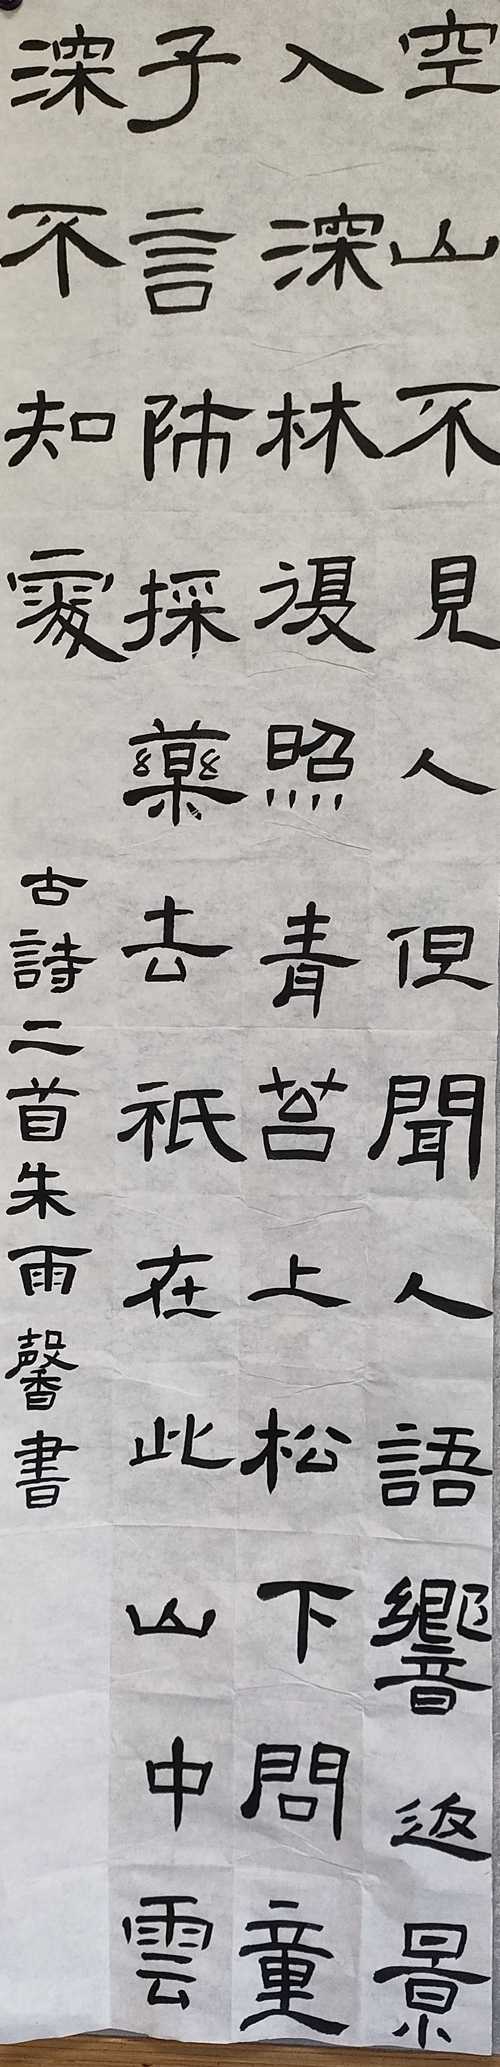 空山不見人但聞人語響返景
入深林復照青苔上松下問童
子言師採藥去祇在此山中雲
深不知處
古詩二首朱雨馨書